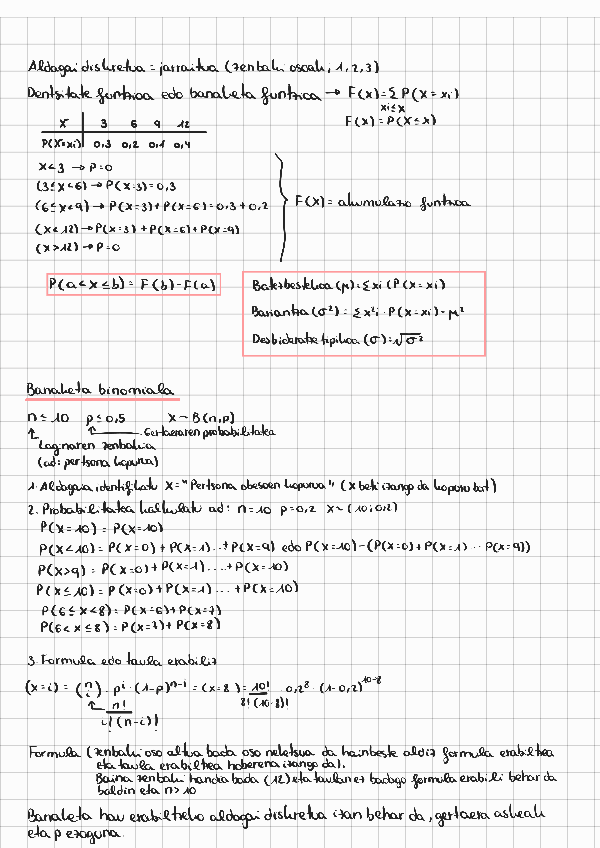 Aldagai diskretua = jarraitua (zenbaki osoak, 1, 2, 3)
Dentsitate funtzioa edo banaketa funtzioa → F(x) = Σ P(X = xi)
xi≤x
F(x) = P(X ≤ x)
X 3 6 9 12
P(X=xi) 0,3 0,2 0,1 0,4
X<3 → P=0
(3≤x<6) → P(X=3) = 0,3
(6≤x<9) → P(X=3) + P(X=6) = 0,3 + 0,2
F(x) = akumulazio funtzioa
(x<12) → P(X=3) + P(X=6) + P(X=9)
(x>12) → P=0
P(a < x ≤ b) = F(b) - F(a)
Batezbestekoa (μ) = Σ xi (P(X = xi)
Bariantza (σ²) = Σ x²i · P(X = xi) - μ²
Desbideratze tipikoa (σ) = √σ²
Banaketa binomiala
n ≤ 10 p ≤ 0,5 X ~ B(n,p)
Gertaeraren probabilitatea
Laginaren zenbakia
(ad: pertsona kopurua)
1. Aldagaia identifikatu X = "Pertsona obesoen kopurua" (X beti izango da kopuru bat)
2. Probabilitatea kalkulatu ad: n=10 p=0,2 X~(10;0,2)
P(X=10) = P(X=10)
P(X<10) = P(X=0) + P(X=1) ... + P(X=9) edo P(X=10) - (P(X=0) + P(X=1) ·· P(X=9))
P(X>9) = P(X=0) + P(X=1) .... + P(X=10)
P(X≤10) = P(X=0) + P(X=1) ... + P(X=10)
P(6≤X<8) = P(X=6) + P(X=7)
P(6<X≤8) = P(X=7) + P(X=8)
3. Formula edo taula erabiliz
(x=i) = (n i) · pⁱ · (1-p)ⁿ⁻ⁱ = (x=8) = 10! / 8!(10-8)! · 0,2⁸ · (1-0,2)¹⁰⁻⁸
n!
i!(n-i)!
Formula (zenbaki oso altua bada oso neketsua da hainbeste aldiz formula erabiltzea
eta taula erabiltzea hoberena izango da).
Baina zenbaki handia bada (12) eta taulan ez badago formula erabili behar da
baldin eta n>10
Banaketa hau erabiltzeko aldagai diskretua izan behar da, gertaera askeak
eta p ezaguna.